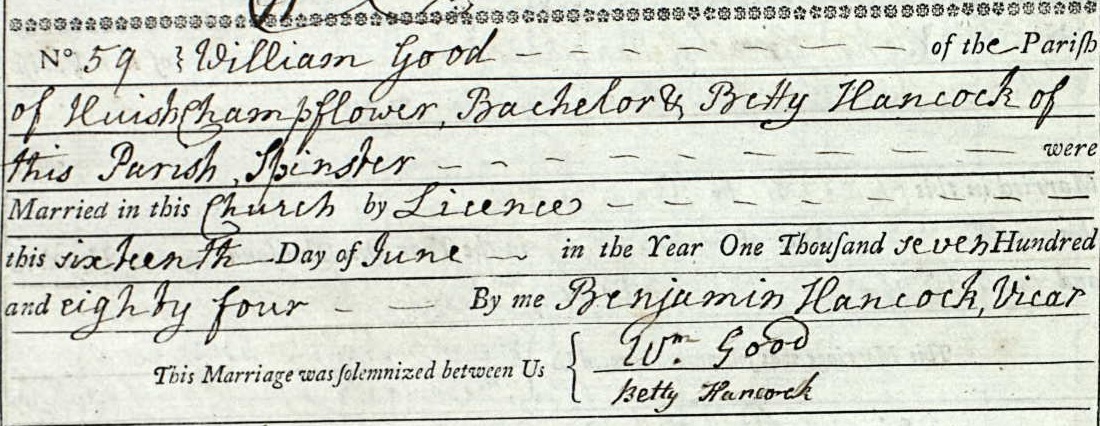 No 59 } William Good of the Pariſh
of Huish Champflower, Bachelor & Betty Hancock of
this Parish, Spinster were
Married in this Church by Licence
this sixteenth Day of June in the Year One Thouſand seven Hundred
and eighty four By me Benjamin Hancock, Vicar
This Marriage was ſolemnized between Us { Wm. Good
Betty Hancock